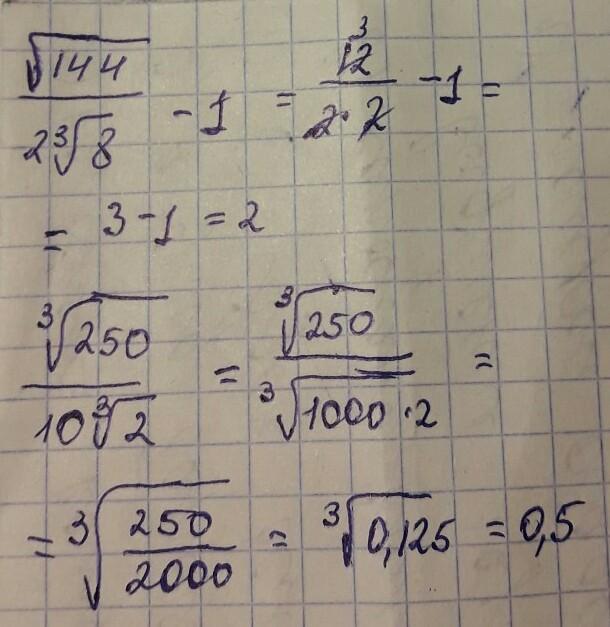 √144 / 2∛8 - 1 = 12³ / 2·2 - 1 =
= 3 - 1 = 2
∛250 / 10∛2 = ∛250 / ∛1000·2 =
= ∛250/2000 = ∛0,125 = 0,5